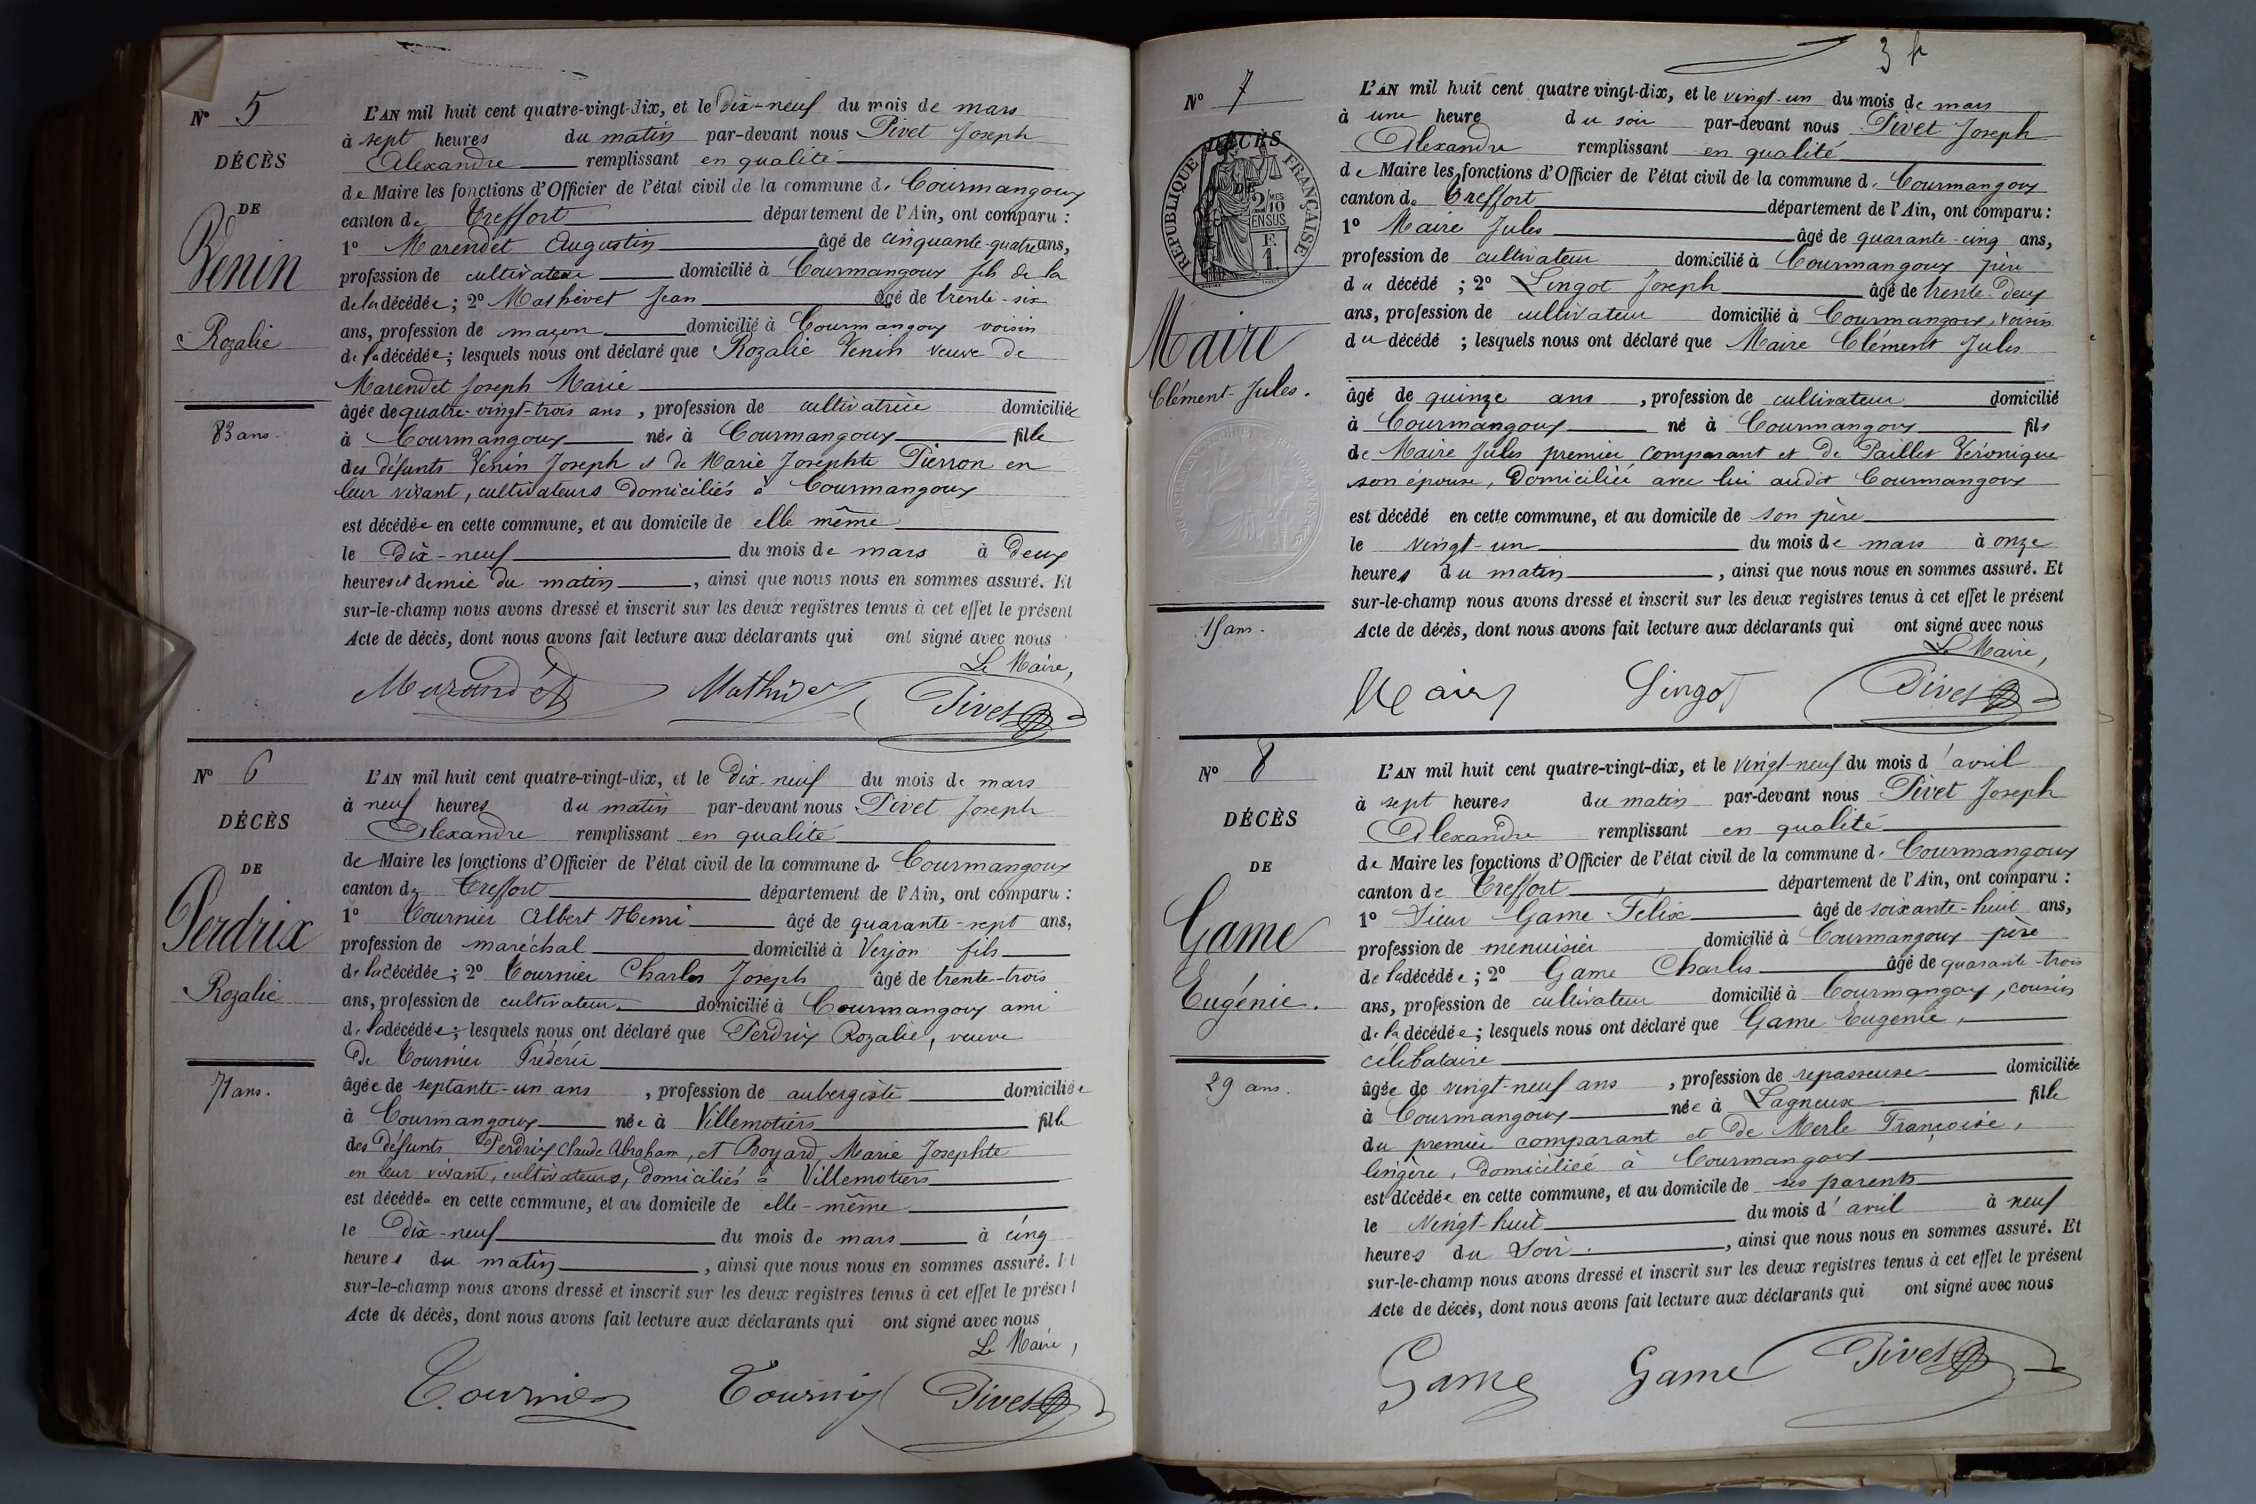 N° 5
DÉCÈS
DE
Venin
Rozalie
83 ans.
L'AN mil huit cent quatre-vingt-dix, et le Dix-neuf du mois de mars
à sept heures du matin par-devant nous Pivet Joseph
Alexandre remplissant en qualité
de Maire les fonctions d'Officier de l'état civil de la commune de Courmangoux
canton de Treffort département de l'Ain, ont comparu :
1° Marendet Augustin âgé de cinquante-quatre ans,
profession de cultivateur domicilié à Courmangoux fils de la
de la décédée ; 2° Mathevet Jean âgé de trente-six
ans, profession de maçon domicilié à Courmangoux voisin
de la décédée ; lesquels nous ont déclaré que Rozalie Venin veuve de
Marendet Joseph Marie
âgée de quatre-vingt-trois ans , profession de cultivatrice domiciliée
à Courmangoux née à Courmangoux fille
des défunts Venin Joseph et de Marie Josephte Pierron en
leur vivant, cultivateurs domiciliés à Courmangoux
est décédée en cette commune, et au domicile de elle même
le Dix-neuf du mois de mars à Deux
heures et demie du matin , ainsi que nous nous en sommes assuré. Et
sur-le-champ nous avons dressé et inscrit sur les deux registres tenus à cet effet le présent
Acte de décès, dont nous avons fait lecture aux déclarants qui ont signé avec nous
Le Maire,
Pivet
N° 6
DÉCÈS
DE
Perdrix
Rozalie
71 ans.
L'AN mil huit cent quatre-vingt-dix, et le Dix-neuf du mois de mars
à neuf heures du matin par-devant nous Pivet Joseph
Alexandre remplissant en qualité
de Maire les fonctions d'Officier de l'état civil de la commune de Courmangoux
canton de Treffort département de l'Ain, ont comparu :
1° Tournier Albert Henri âgé de quarante-sept ans,
profession de maréchal domicilié à Verjon fils
de la décédée ; 2° Tournier Charles Joseph âgé de trente-trois
ans, profession de cultivateur domicilié à Courmangoux ami
de la décédée ; lesquels nous ont déclaré que Perdrix Rozalie, veuve
de Tournier Fréderic
âgée de septante-un ans , profession de aubergiste domiciliée
à Courmangoux née à Villemotiers fille
des défunts Perdrix Claude Abraham, et Boyard Marie Josephte
en leur vivant, cultivateurs, domiciliés à Villemotiers
est décédée en cette commune, et au domicile de elle-même
le Dix-neuf du mois de mars à cinq
heures du matin , ainsi que nous nous en sommes assuré. Et
sur-le-champ nous avons dressé et inscrit sur les deux registres tenus à cet effet le présent
Acte de décès, dont nous avons fait lecture aux déclarants qui ont signé avec nous
Le Maire,
Tournier Tournier Pivet
3
N° 7
DÉCÈS
DE
RÉPUBLIQUE FRANÇAISE
2/10 MES
EN SUS
F.
1.
Maire
Clément-Jules.
15 ans.
L'AN mil huit cent quatre vingt-dix, et le vingt-un du mois de mars
à une heure du soir par-devant nous Pivet Joseph
Alexandre remplissant en qualité
de Maire les fonctions d'Officier de l'état civil de la commune de Courmangoux
canton de Treffort département de l'Ain, ont comparu :
1° Maire Jules âgé de quarante-cinq ans,
profession de cultivateur domicilié à Courmangoux père
du décédé ; 2° Lingot Joseph âgé de trente-deux
ans, profession de cultivateur domicilié à Courmangoux, voisin
du décédé ; lesquels nous ont déclaré que Maire Clément Jules
âgé de quinze ans , profession de cultivateur domicilié
à Courmangoux né à Courmangoux fils
de Maire Jules premier comparant et de Paillet Véronique
son épouse, Domiciliée avec lui audit Courmangoux
est décédé en cette commune, et au domicile de son père
le vingt-un du mois de mars à onze
heures du matin , ainsi que nous nous en sommes assuré. Et
sur-le-champ nous avons dressé et inscrit sur les deux registres tenus à cet effet le présent
Acte de décès, dont nous avons fait lecture aux déclarants qui ont signé avec nous
Le Maire,
Maire Lingot Pivet
N° 8
DÉCÈS
DE
Game
Eugénie.
29 ans.
L'AN mil huit cent quatre-vingt-dix, et le vingt-neuf du mois d'avril
à sept heures du matin par-devant nous Pivet Joseph
Alexandre remplissant en qualité
de Maire les fonctions d'Officier de l'état civil de la commune de Courmangoux
canton de Treffort département de l'Ain, ont comparu :
1° Sieur Game Félix âgé de soixante-huit ans,
profession de menuisier domicilié à Courmangoux père
de la décédée ; 2° Game Charles âgé de quarante-trois
ans, profession de cultivateur domicilié à Courmangoux, cousin
de la décédée ; lesquels nous ont déclaré que Game Eugénie,
célibataire
âgée de vingt-neuf ans , profession de repasseuse domiciliée
à Courmangoux née à Lagneux fille
du premier comparant et de Merle Françoise,
lingère, domiciliée à Courmangoux
est décédée en cette commune, et au domicile de ses parents
le vingt-huit du mois d'avril à neuf
heures du soir , ainsi que nous nous en sommes assuré. Et
sur-le-champ nous avons dressé et inscrit sur les deux registres tenus à cet effet le présent
Acte de décès, dont nous avons fait lecture aux déclarants qui ont signé avec nous
Game Game Pivet